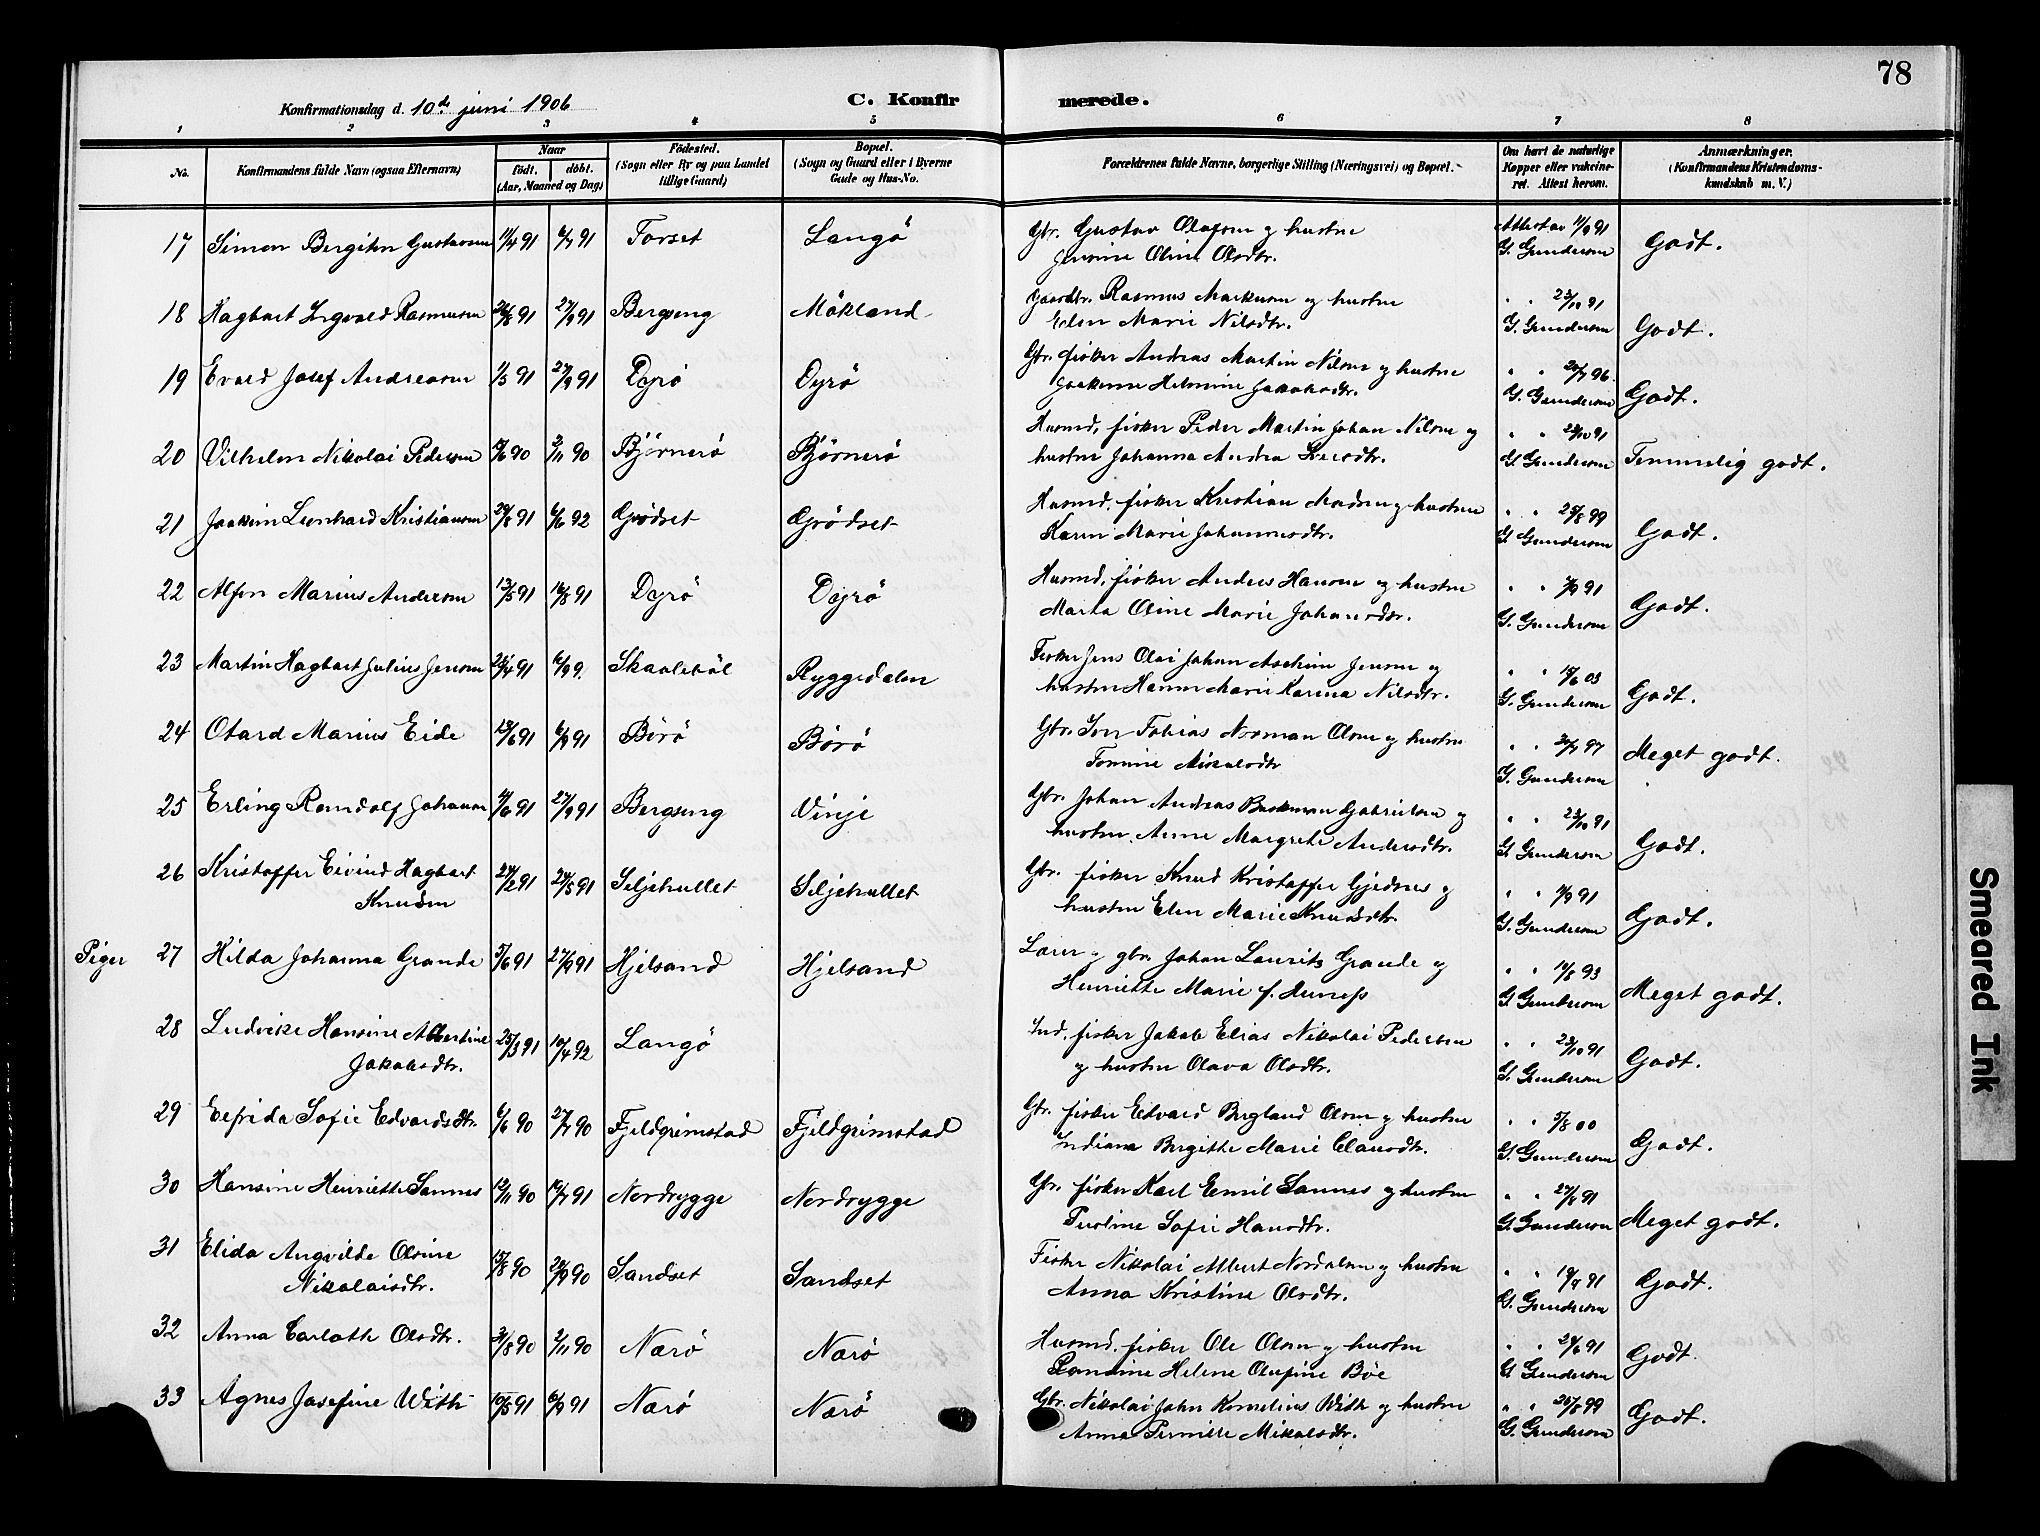 78
Konfirmationsdag d. 10de juni 1906
C. Konfirmerede.
1 2 3 4 5 6 7 8
No.
Konfirmandens fulde Navn (ogsaa Efternavn)
Naar
født. døbt.
(Aar, Maaned og Dag)
Fødested.
(Sogn eller By og paa Landet
tillige Gaard)
Bopæl.
(Sogn og Gaard eller i Byerne
Gade og Hus-No.
Forældrenes fulde Navne, borgerlige Stilling (Næringsvei) og Bopæl.
Om havt de naturlige
Kopper eller vakcine-
ret. Attest herom.
Anmærkninger.
(Konfirmandens Kristendoms-
kundskab m. V.)
17 Simon Bergiton Gustavsen 11/4 91 6/7 91 Forset Langö Gbr. Gustav Olafsen og hustru Attest av 11/9 91
Jensine Oline Olsdtr. G. Gundersen Godt.
18 Hagbart Ingvald Rasmusen 26/8 91 27/9 91 Bergseng Mökland Gaardbr. Rasmus Markusen og hustru " " 23/10 91
Elen Marie Nilsdtr. G. Gundersen Godt.
19 Evald Josef Andreasen 1/5 91 27/9 91 Dyrö Dyrö Gbr. fisker Andreas Martin Nilsen og hustru
Helmine Jakobsdtr. G. Gundersen Godt.
20 Vilhelm Nikolai Pedersen 2/11 90 Björnerö Björnerö Husmd. fisker Peder Martin Johan Nilsen og
hustru Johanna Andrea G. Gundersen Temmelig godt.
21 Joakim Leonhard Kristiansen 6/6 92 Grödset Grödset Husmd. fisker Kristian Madsen og hustru
Karen Marie Johannesdtr. G. Gundersen Godt.
22 Alfon Marius Andersen 13/5 91 16/8 91 Dyrö Dyrö Husmd. fisker Anders Hansen og hustru
Marta Oline Marie Johansdtr. G. Gundersen Godt.
23 Martin Hagbart Julius Jensen Skaaleböl Ryggedalen Fisker Jens Olai Johan Jensen og " " 15/6 03
hustru Hanna Marie Karina Nilsdtr. G. Gundersen Godt.
24 Otard Marius Eide 6/9 91 Börö Börö Gbr. Tobias Norman Olsen og hustru
Tomine Mikalsdtr G. Gundersen Meget godt.
25 Erling Randolf Johansen 27/9 91 Bergseng Vinje Gbr. Johan Andreas Gabrielsen og " " 23/10 91
hustru Anne Margrete Andersdtr. G. Gundersen Godt.
26 Kristoffer Eivind Hagbart 24/5 91 Seljehullet Seljehullet Gbr. fisker Knud Kristoffer Gjednes og
Knudsen hustru Elen Marie Knudsdtr. G. Gundersen Godt.
Piger 27 Hilda Johanna Grande 5/6 91 27/9 91 Hjelsand Hjelsand Lærer og gbr. Johan Laurits Grande og
Henriette Marie f. G. Gundersen Meget godt.
28 Ludvike Hansine Albertine 25/3 91 10/4 92 Langö Ind. fisker Jakob Elias Nikolai Pedersen " " 23/10 91
Jakobsdtr. og hustru Olava Olsdtr. G. Gundersen Godt.
29 Elfrida Sofie Edvardsdtr. 6/6 90 27/7 90 Fjeldgrimstad Fjeldgrimstad Gbr. fisker Edvard Bergland Olsen og hustru
Indiana Birgitte Marie Clausdtr. G. Gundersen Godt.
30 Hansine Henriette Sannes 12/11 90 19/7 91 Nordrygge Nordrygge Gbr. fisker Karl Emil Sannes og hustru
Perline Sofie Hansdtr. G. Gundersen Meget godt.
31 Elida Angvilde Olsine 15/8 90 28/9 90 Sandset Sandset Fisker Nikolai Albert Nordalsen og hustru
Nikolaisdtr. Anna Kristine Olsdtr. G. Gundersen Godt.
32 Anna Carlothe Olsdtr. 31/8 90 2/11 90 Nærö Nærö Husmd. fisker Ole Olsen og hustru
Helene Olufine Böe G. Gundersen Godt.
33 Agnes Josefine With 10/5 91 6/9 91 Nærö Nærö Gbr. Nikolai John Kornelius With og hustru
Anna Pernille Mikalsdtr. G. Gundersen Godt.
Smeared Ink